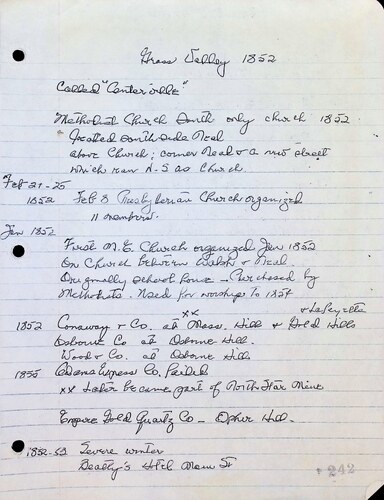 Grass Valley 1852
Called "Centerville"
Methodist Church South only church 1852
located south side Neal
above Church; corner Neal & a new street
which ran N-S as Church.
Feb 21-25
1852 Feb 8 Presbyterian Church organized
11 members.
Jan 1852
First M.E. Church organized Jan 1852
On Church between Walsh & Neal
Originally school house - Purchased by
Methodists. Used for worship to 1854
xx & LaFayette
1852 Conaway & Co. at Mass. Hill & Gold Hills
Osborne Co at Osborne Hill.
Wood & Co. at Osborne Hill
1855 Adams Express Co. Failed
xx Later became part of North Star Mine
Empire Gold Quartz Co - Ophir Hill.
1852-53 Severe winter
Beatty's Hotel Main St
242